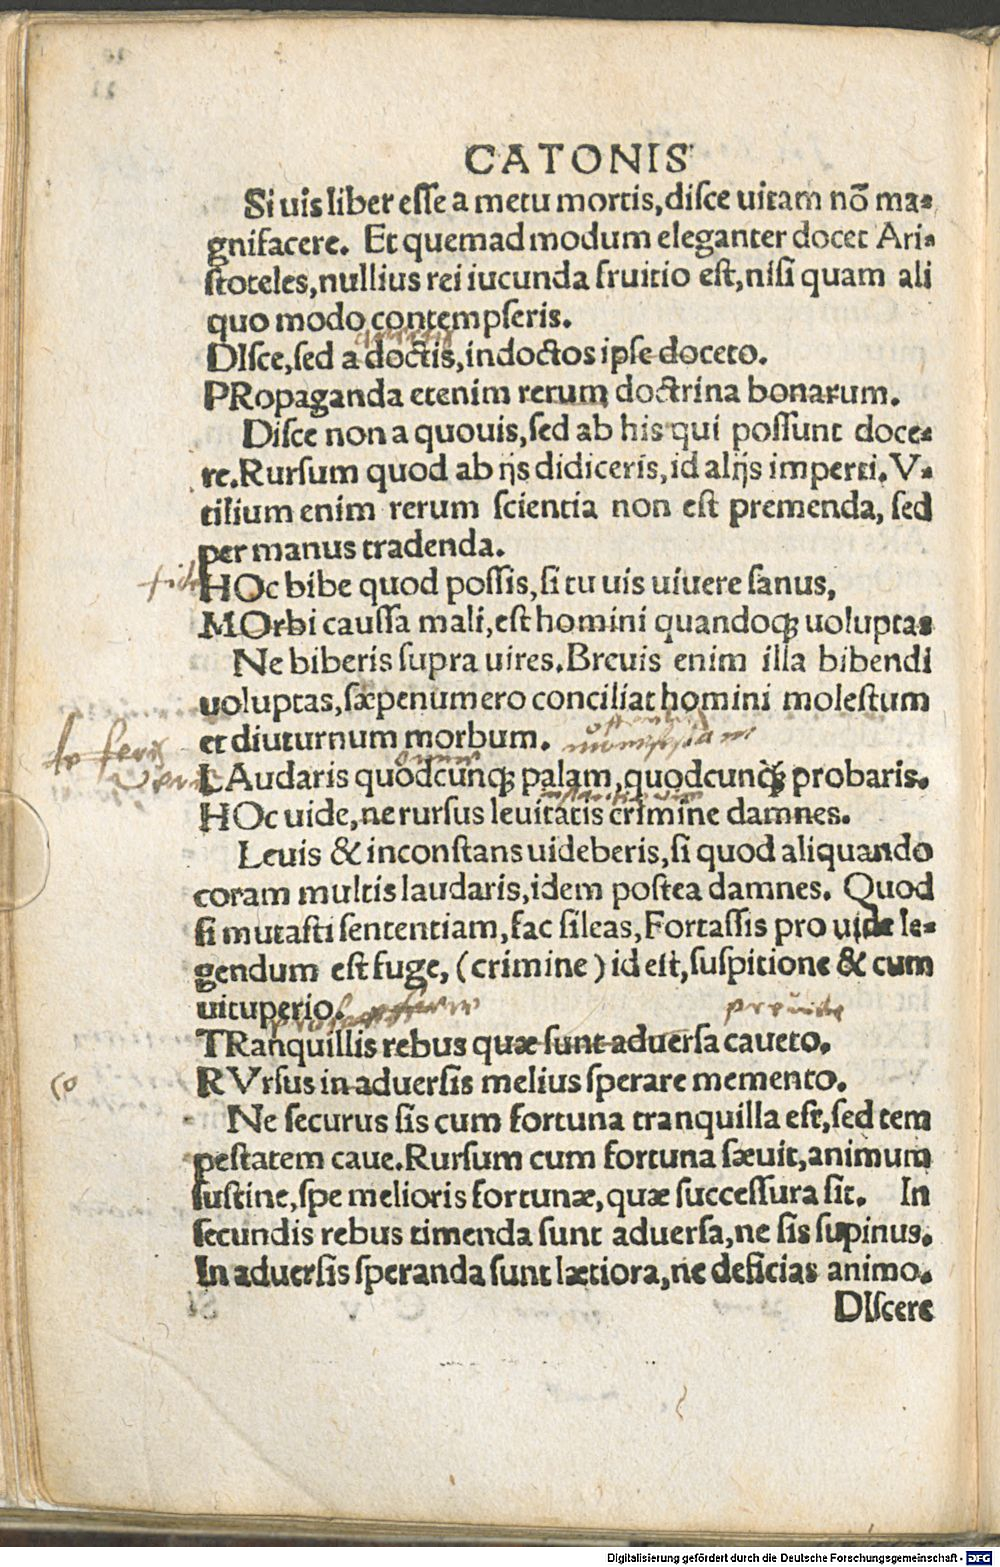 CATONIS
Si uis liber esse a metu mortis, disce uitam nō ma-
gnifacere. Et quemadmodum eleganter docet Ari-
stoteles, nullius rei iucunda fruitio est, nisi quam ali
quo modo contempseris.
DIsce, sed a doctis, indoctos ipse doceto.
PRopaganda etenim rerum doctrina bonarum.
Disce non a quouis, sed ab his qui possunt doce-
re. Rursum quod ab ijs didiceris, id alijs imperti. V-
tilium enim rerum scientia non est premenda, sed
per manus tradenda.
HOc bibe quod possis, si tu uis uiuere sanus,
MOrbi caussa mali, est homini quandoq; uoluptas
Ne biberis supra uires. Breuis enim illa bibendi
uoluptas, sæpenumero conciliat homini molestum
et diuturnum morbum.
LAudaris quodcunq; palam, quodcunq; probaris.
HOc uide, ne rursus leuitatis crimine damnes.
Leuis & inconstans uideberis, si quod aliquando
coram multis laudaris, idem postea damnes. Quod
si mutasti sententiam, fac sileas, Fortassis pro uide le-
gendum est fuge, (crimine) id est, suspitione & cum
uituperio.
prouide
TRanquillis rebus quæ sunt aduersa caueto.
RVrsus in aduersis melius sperare memento.
Ne securus sis cum fortuna tranquilla est, sed tem
pestatem caue. Rursum cum fortuna sæuit, animum
sustine, spe melioris fortunæ, quæ successura sit. In
secundis rebus timenda sunt aduersa, ne sis supinus.
In aduersis speranda sunt lætiora, ne deficias animo.
DIscere
Digitalisierung gefördert durch die Deutsche Forschungsgemeinschaft - DFG